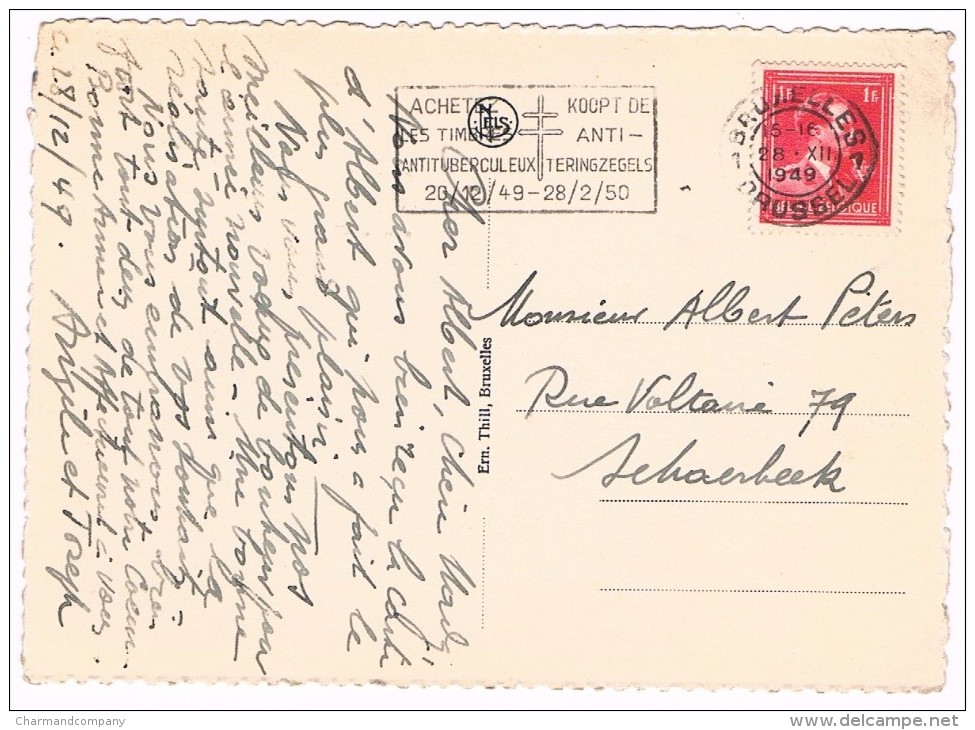 ACHETEZ
LES TIMBRES
ANTITUBERCULEUX
KOOPT DE
ANTI-
TERINGZEGELS
20/12/49-28/2/50
NELS
1F 1Fr
BRUXELLES 1
-16
28 · XII
1949
1 BRUSSEL
BELGIQUE
Monsieur Albert Péters
Rue Voltaire 79
Schaerbeek
Ern. Thill, Bruxelles
Cher Albert, Chère
nous avons bien reçu la carte
d'Albert qui nous a fait le
plus grand plaisir.
Nous vous presentons nos
Meilleurs voeux de bonheur pour
l'année nouvelle - Une bonne
santé surtout ainsi que la
réalisation de vos souhaits
Nous vous embrassons bien
fort tout deux de tout notre Coeur
Bonne Année et Affectueuse à vous
Angèle et Joseph
28/12/49.
Charmandcompany
www.delcampe.net